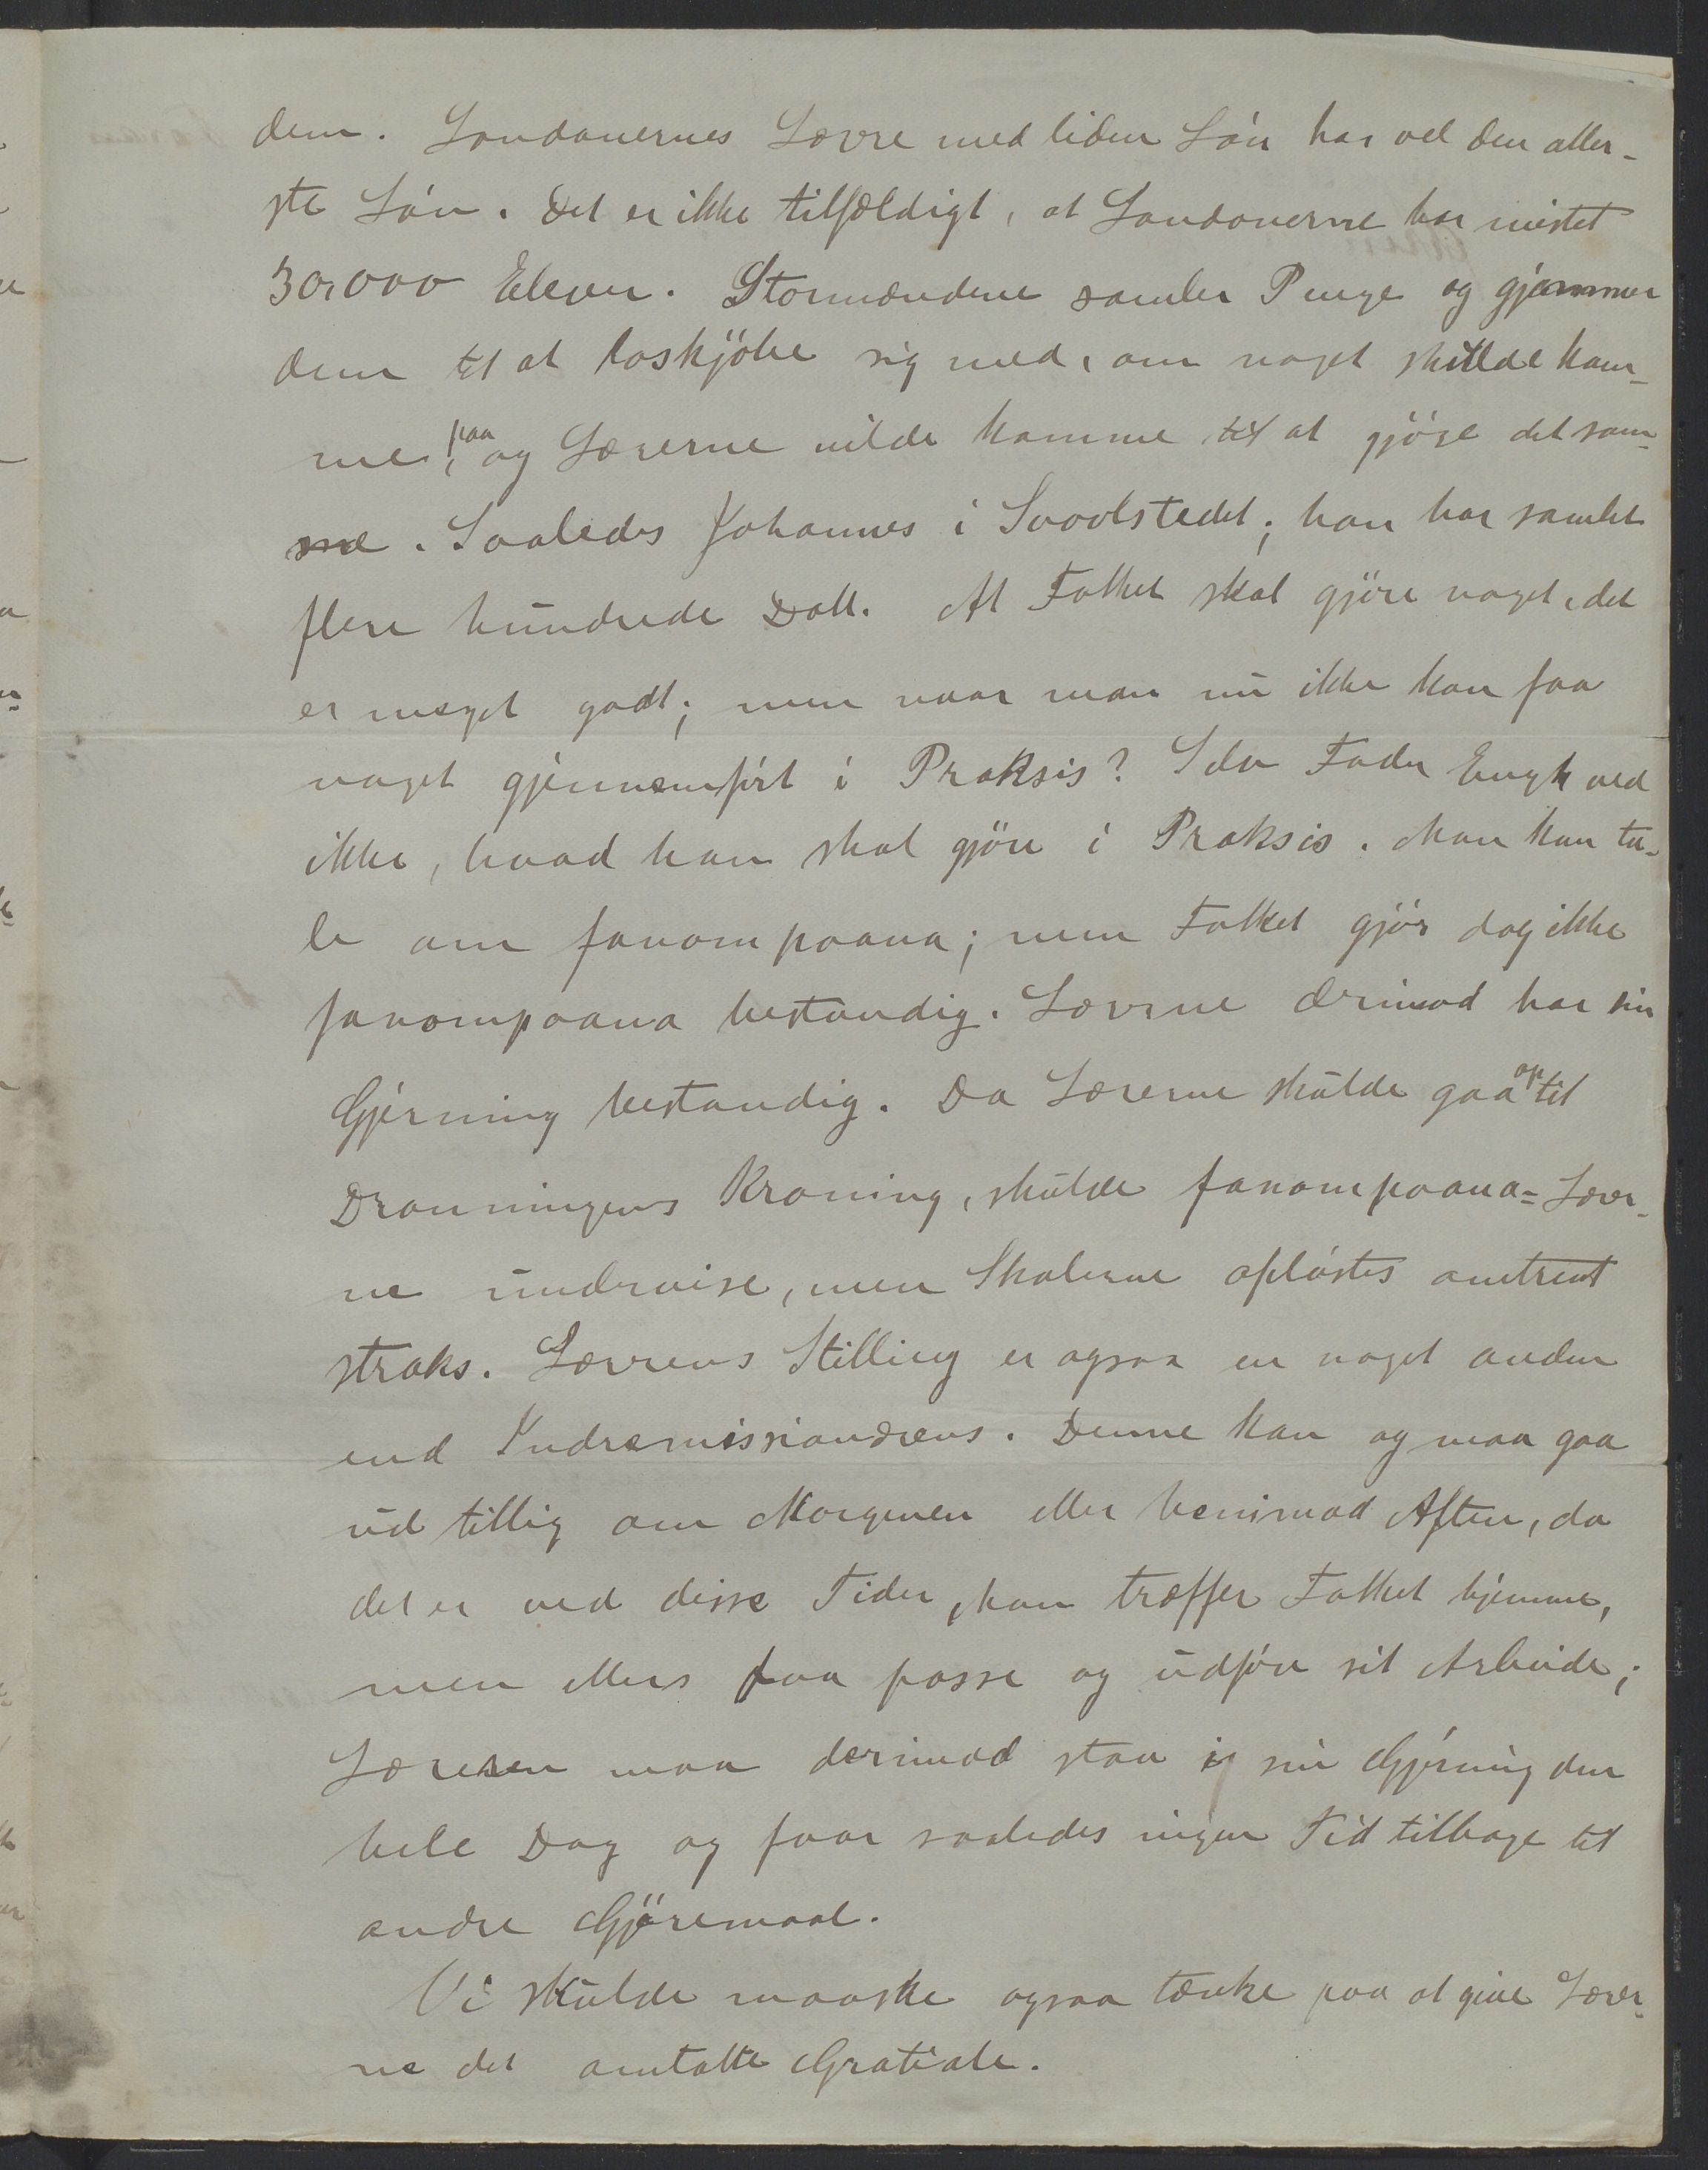 dem. Londonernes Lærere med liden Løn har vel den aller-
ste Løn. Det er ikke tilfældigt, at Londonerne har mistet
30,000 Elever. Stormændene samler Penge og gjemmer
dem til at loskjøbe sig med, om noget skulde kom-
me paa, og Lærerne vilde komme til at gjøre det sam-
me. Saaledes Johannes i Svovlstedet; han har samlet
flere hundrede Doll. At Folket skal gjøre noget, det
er meget godt; men naar man nu ikke kan faa
noget gjennemført i Praksis? Selv Fader Engh ved
ikke, hvad han skal gjøre i Praksis. Man kan ta-
le om fanompoana; men Folket gjør dog ikke
fanompoana bestandig. Lærerne derimod har sin
Gjerning bestandig. Da Lærerne skulde gaa op til
Dronningens Kroning, skulde fanompoana=Lærer-
ne undervise, men Skolerne opløstes omtrent
straks. Lærerens Stilling er ogsaa en noget anden
end Indremissionærens. Denne kan og maa gaa
ud tillig om Morgenen eller henimod Aften, da
det er ved disse Tider, han træffer Folket hjemme,
men ellers faa passe og udføre sit Arbeide;
Læreren maa derimod staa i sin Gjerning den
hele Dag og faar saaledes ingen Tid tilbage til
andre Gjøremaal.
Vi skulde maaske ogsaa tænke paa at give Lærer-
ne det omtalte Gratiale.